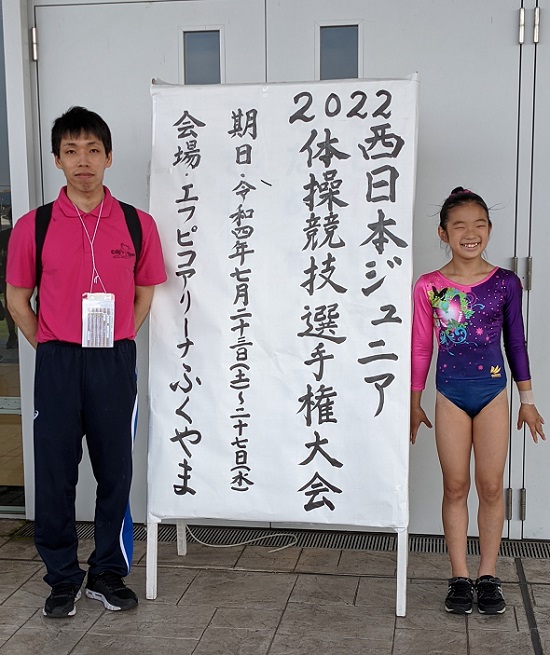 2022西日本ジュニア
体操競技選手権大会
期日・令和四年七月二十三日(土)~二十七日(水)
会場・エフピコアリーナふくやま